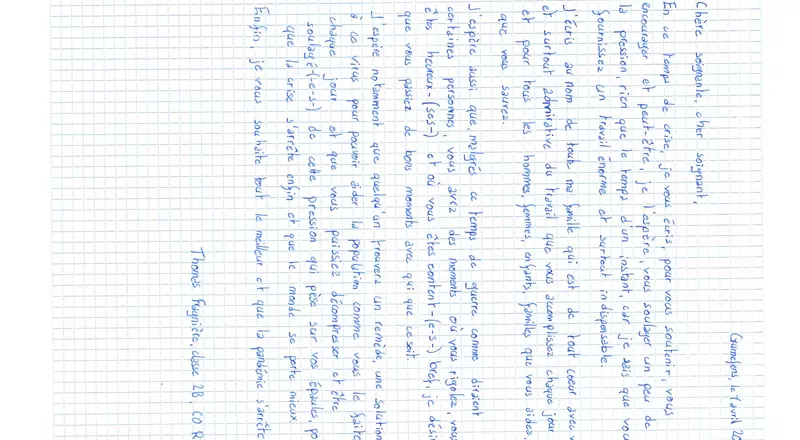 Gumefens, le 1 avril 20
Chère soignante, cher soignant,
En ce temps de crise, je vous écris, pour vous soutenir, vous
encourager et peut-être, je l'espère, vous soulager un peu de
la pression, rien que le temps d'un instant, car je sais que vou
fournissez un travail énorme et surtout indispensable.
J'écris au nom de toute ma famille qui est de tout coeur avec v
et surtout admirative du travail que vous accomplissez chaque jour
et pour tous les hommes, femmes, enfants, familles que vous aidez,
que vous sauvez.
J'espère aussi que, malgrés ce temps de guerre comme diraient
certaines personnes, vous avez des moments où vous rigolez, vous
êtes heureux-(ses-) et où vous êtes content-(e-s-) bref, je désir
que vous passiez de bons moments avec qui que ce soit.
J'espère notamment que quelqu'un trouvera un remède, une solution
à ce virus pour pouvoir aider la population comme vous le faite
chaque jour et que vous puissiez décompresser et être
soulagé-(-e-s-) de cette pression qui pèse sur vos épaules po
que la crise s'arrête enfin et que le monde se porte mieux.
Enfin, je vous souhaite tout le meilleur et que la pandémie s'arrête
Thomas classe 2B, CO R